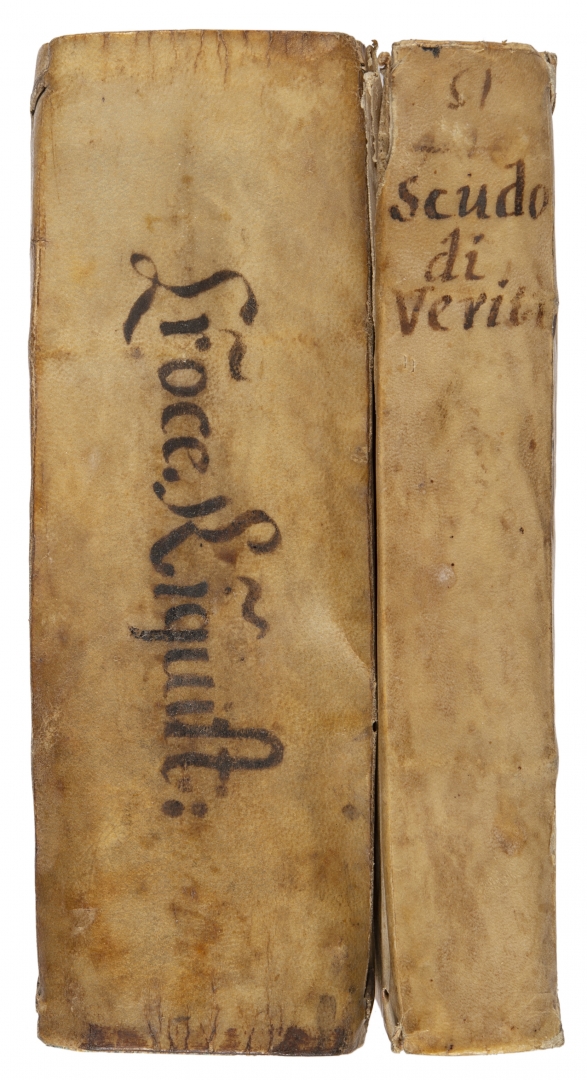 Proce. Riquiſt:
51
Scudo
di
Verità